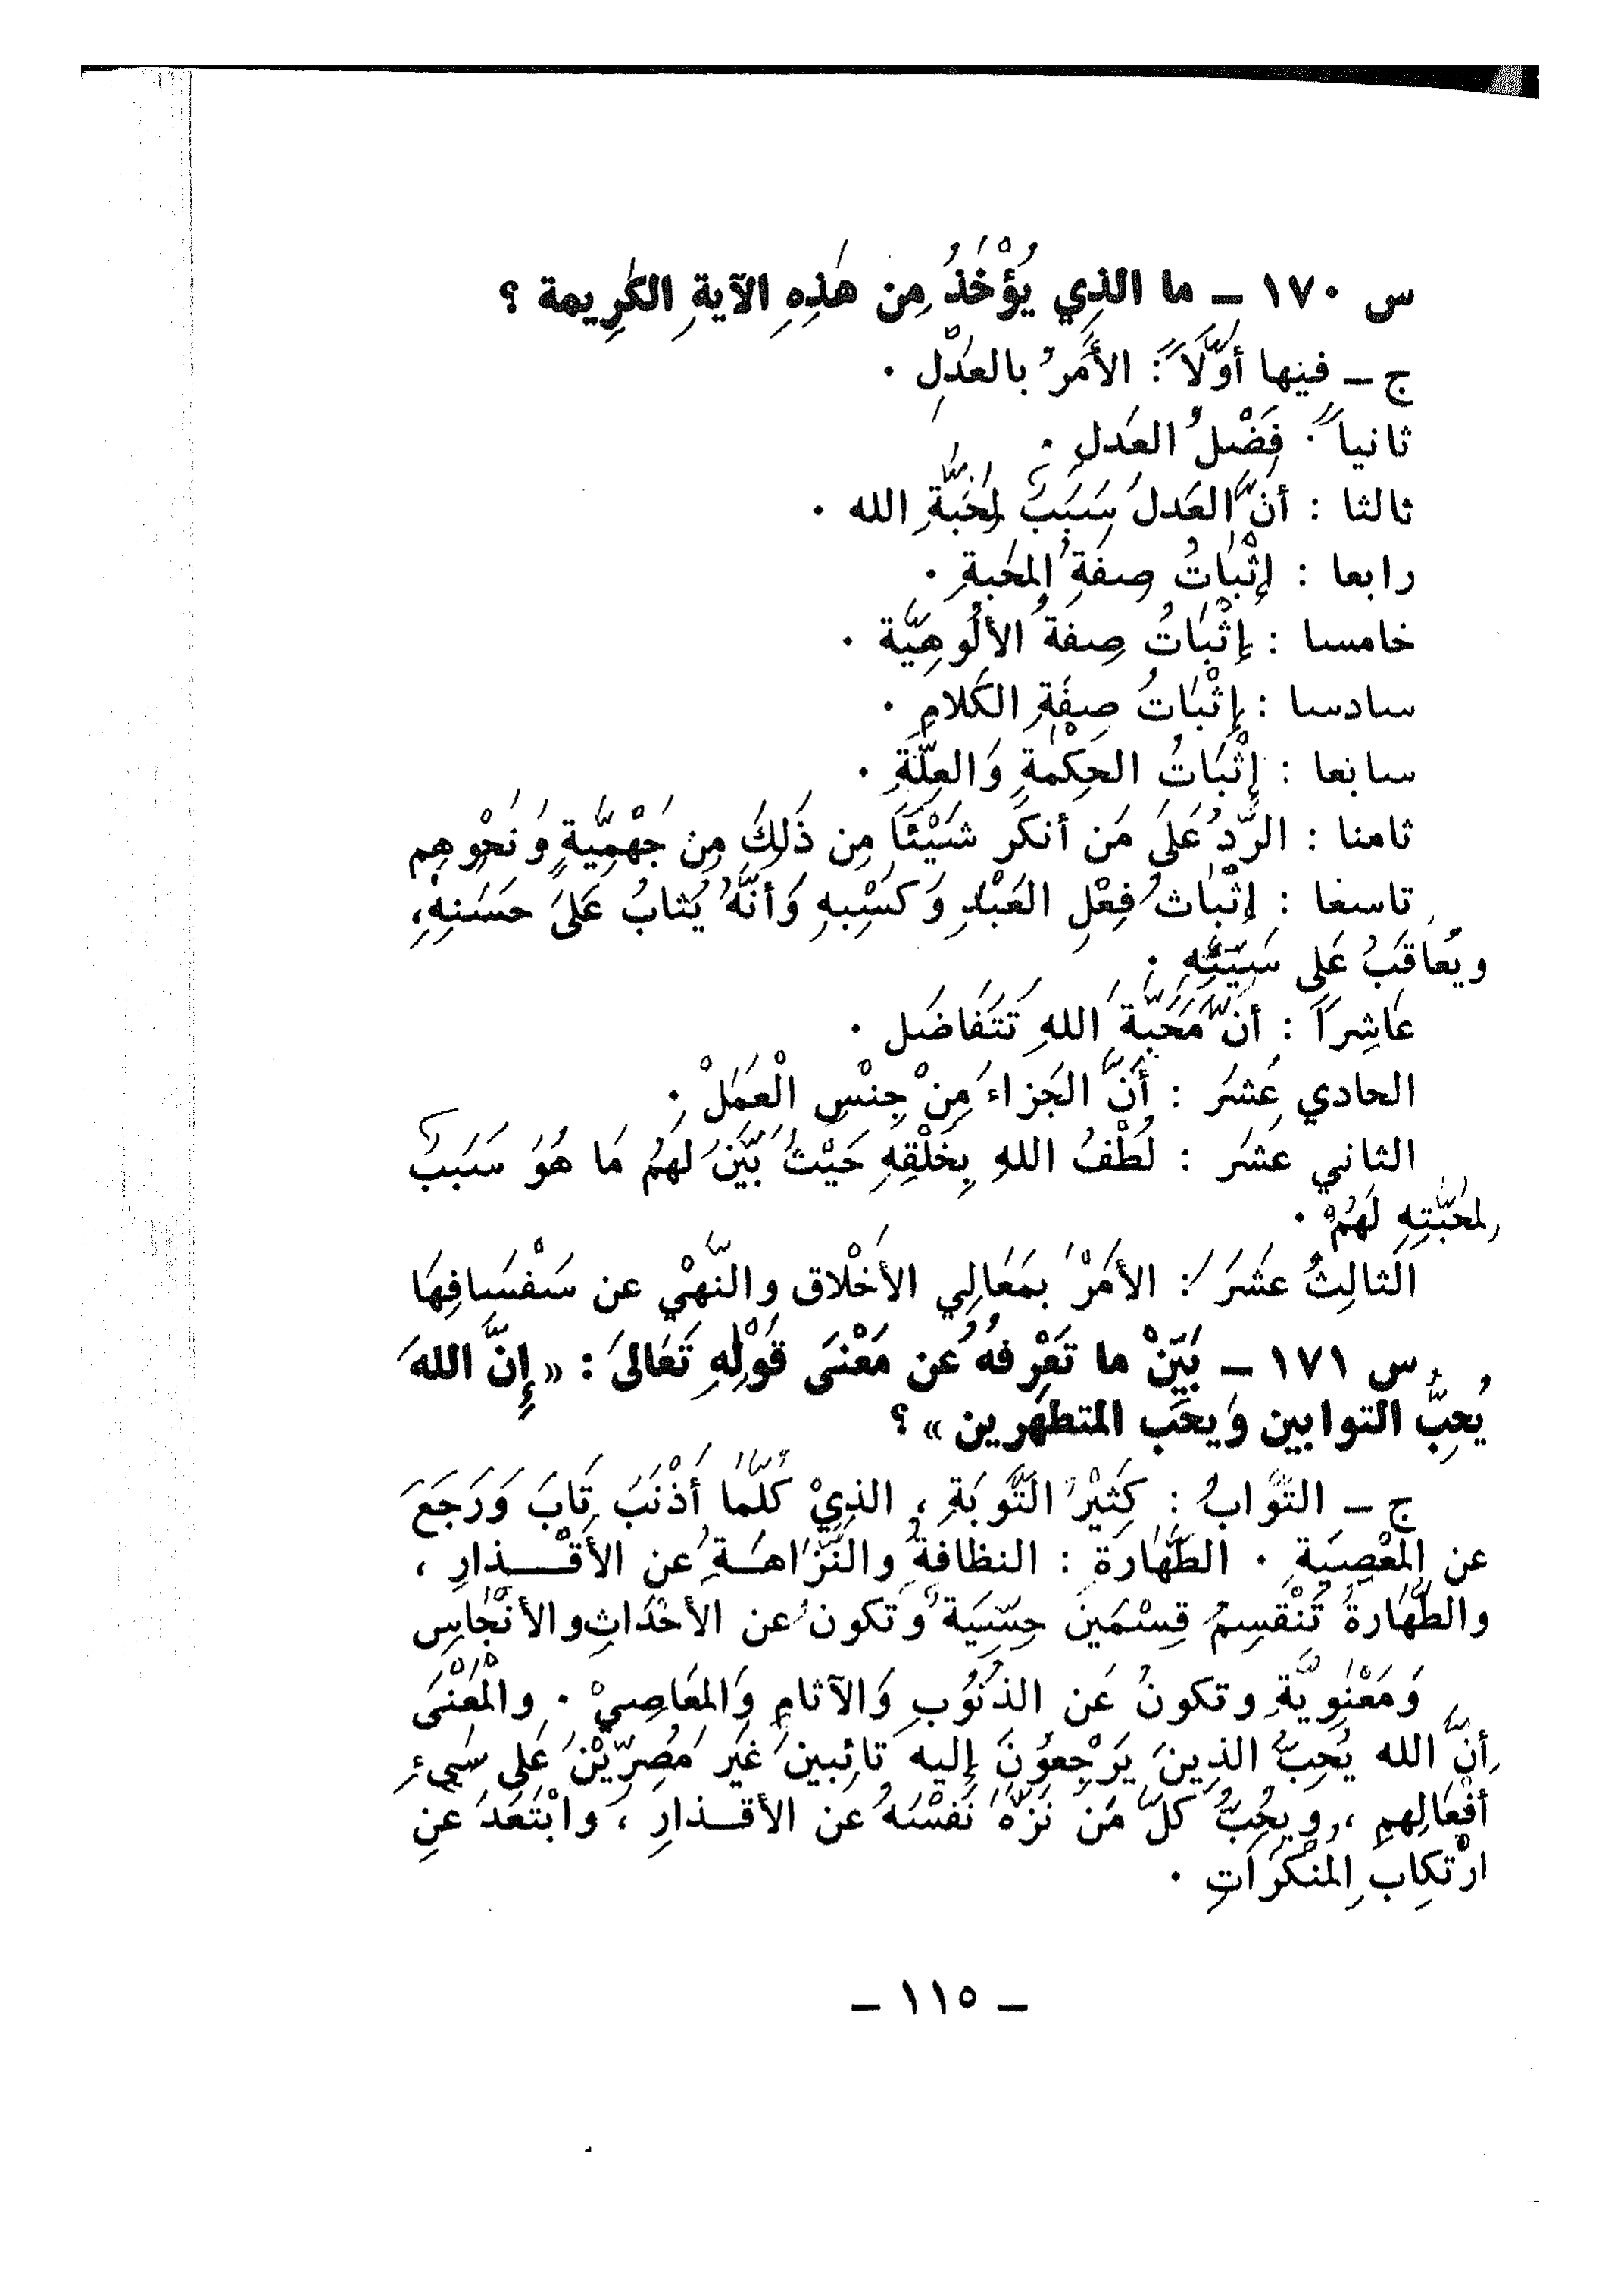 س ١٧٠ ــ ما الذِي يُؤْخَذُ مِن هَذِهِ الآيةِ الكَرِيمة ؟
ج ــ فيها أوَّلاً : الأَمرُ بالعَدْلِ .
ثانياً . فَضْلُ العَدلِ .
ثالثا : أنَّ العَدلَ سَبَبٌ لِمَحَبَّةِ الله .
رابعا : إثْبَاتُ صِفَةِ المحَبةِ .
خامسا : إثْبَاتُ صِفةُ الألُوهِيَّة .
سادسا : إثْبَاتُ صِفَةِ الكَلامِ .
سابعا : إثْبَاتُ الحِكْمَةِ وَالعِلَّةِ .
ثامنا : الرَّدُ عَلَى مَن أنكَر شَيْئَاً مِن ذَلِكَ مِن جَهْمِيَّةٍ وَنَحْوِهِم
تاسعا : إثْبَاتُ فِعْلِ العَبْدِ وَكَسْبِهِ وَأنَّهُ يُثابُ عَلَى حَسَنِهِ،
ويُعَاقَبُ عَلى سَيِّئِهِ .
عَاشِراً : أنَّ مَحَبَّةَ اللهِ تَتَفَاضَل .
الحادي عَشَر : أَنَّ الجَزاءَ مِنْ جِنْسِ الْعَمَلْ .
الثاني عَشَر : لُطْفُ اللهِ بِخَلْقِهِ حَيْثُ بَيَّنَ لهُم مَا هُوَ سَبَبٌ
لمحَبَّتِهِ لَهُمْ .
الثالِثُ عَشَرَ : الأمَرْ بمَعَالِي الأخْلاق والنَّهْي عن سَفْسَافِهَا
س ١٧١ ــ بَيِّنْ ما تَعْرِفهُ عن مَعْنَى قَوْلِهِ تَعَالىَ : « إنَّ اللهَ
يُحِبُّ التوابين وَيحَب المتطهَرين » ؟
ج ــ التَّوَابُ : كَثِيْرُ التَّوبَةِ ، الذِيْ كُلَّمَا أَذْنَبَ تَابَ وَرَجَعَ
عن المَعْصِيَةِ . الطَّهَارة : النظافةُ والنَّزَاهَـةِ عن الأقْـــذارِ ،
والطَّهَارةُ تَنْقَسِمُ قِسْمَينَ حِسِّيَة وَتكونُ عن الأحْدَاثِ والأنْجَاسِ
وَمَعْنَوِيَّةِ وتكونُ عَن الذنُوُبِ وَالآثامِ وَالمَعَاصِيْ . والْمَعْنَى
أنَّ الله يُحِبُّ الذِينَ يَرْجِعوُنَ إليه تائِبينَ غَيَر مُصِرِّيْنَ عَلى سَيِّءِ
أفْعَالِهِمِ ، ويُحِبُّ كلَّ مَن نَزَّهَ نَفْسَهُ عن الأقـــذارِ ، وابْتَعَدَ عنِ
ارْتكِابِ المُنْكَرَاتِ .
ــ ١١٥ ــ